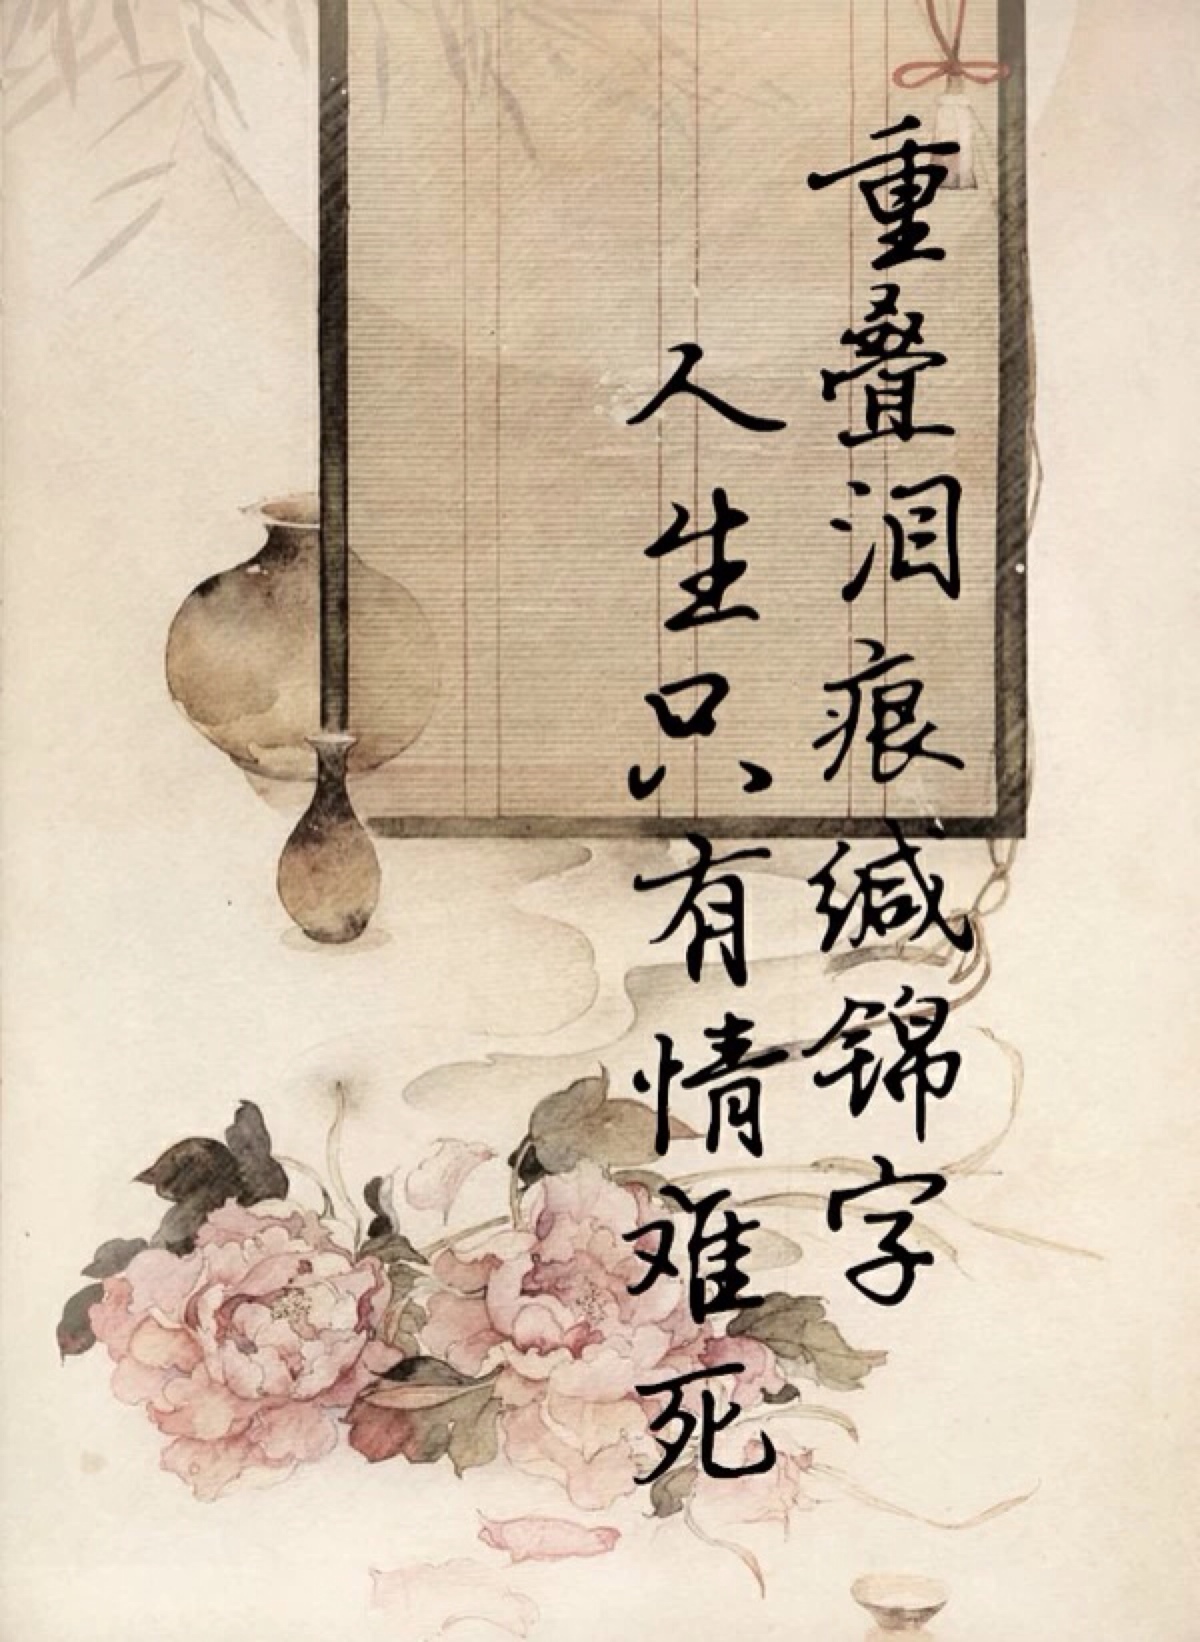 重叠泪痕缄锦字
人生只有情难死